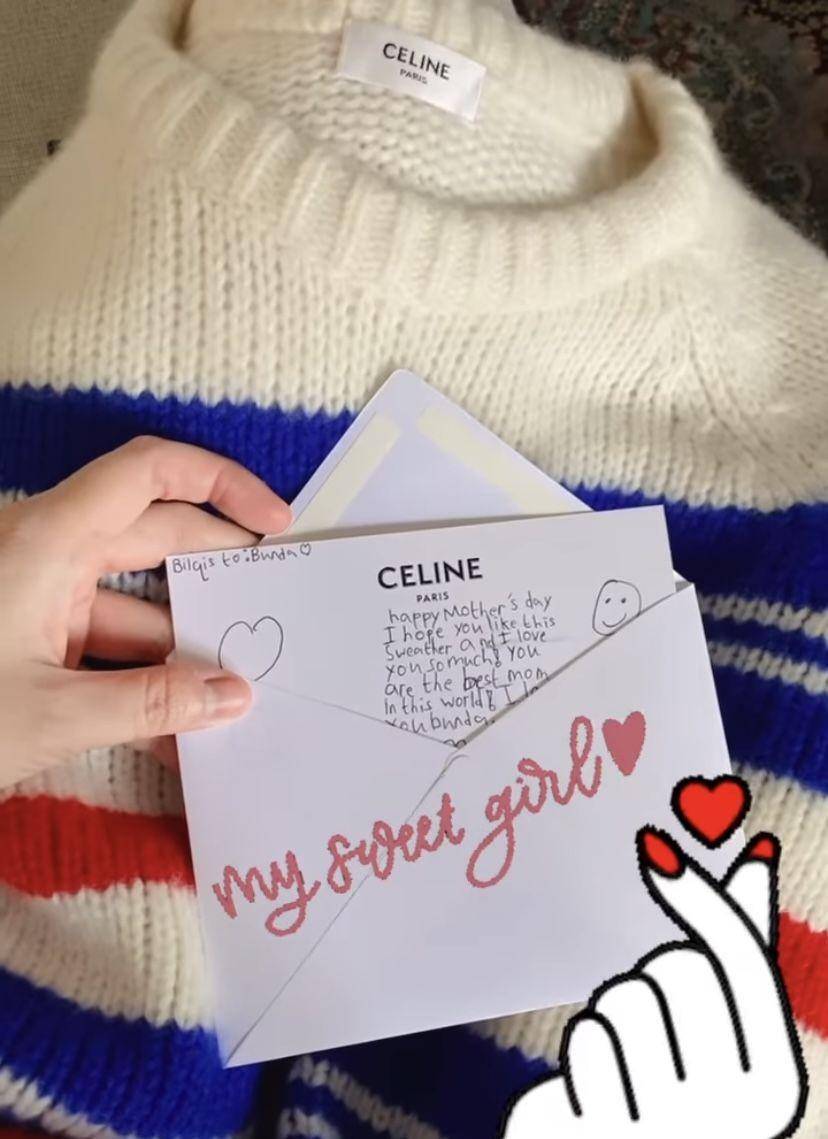 CELINE
PARIS
Bilqis to: Bunda♡
CELINE
PARIS
happy Mother's day
I hope you like this
Sweather and I love
you so much! You
are the best mom
in this world! I
you bunda.
my sweet girl♥